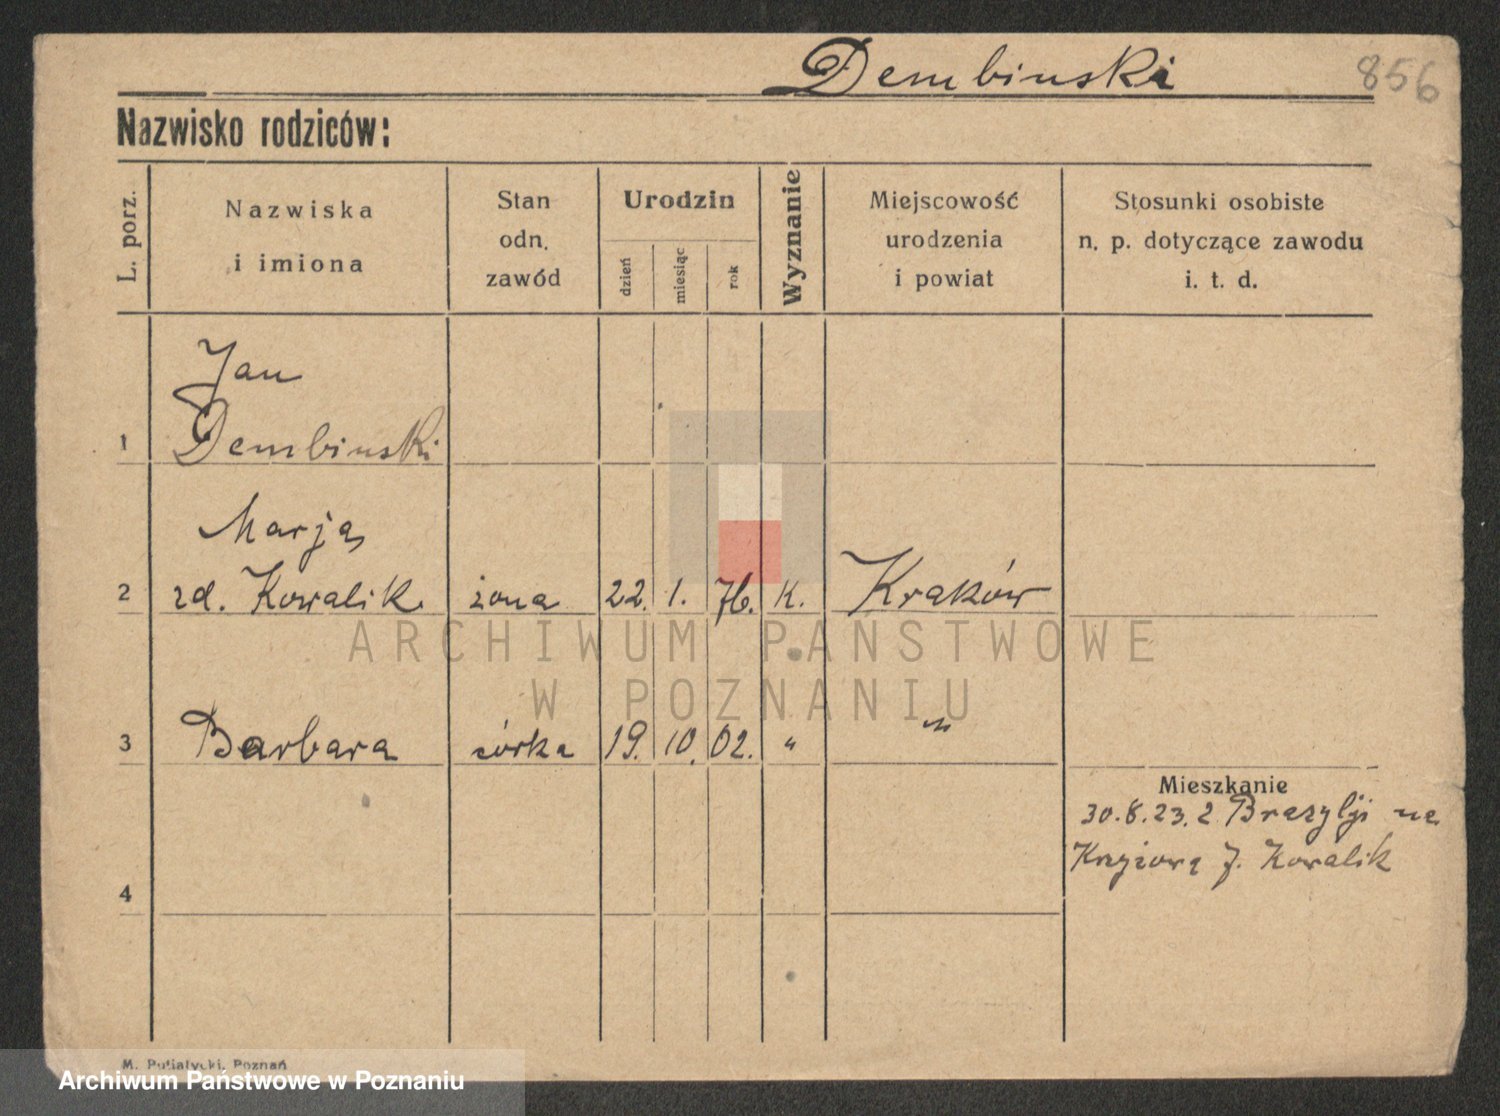 Dembinski
856
Nazwisko rodziców:
L. porz.
Nazwiska
i imiona
Stan
odn.
zawód
Urodzin
dzień
miesiąc
rok
Wyznanie
Miejscowość
urodzenia
i powiat
Stosunki osobiste
n. p. dotyczące zawodu
i. t. d.
Jan
1 Dembinski
Marja
2 zd. Kowalik żona 22. 1. 76. K. Kraków
ARCHIWUM PAŃSTWOWE
W POZNANIU
3 Barbara córka 19. 10. 02. " "
Mieszkanie
30.8.23. z Brazylji na
4
J. Kowalik
M. Putiatycki, Poznań
Archiwum Państwowe w Poznaniu